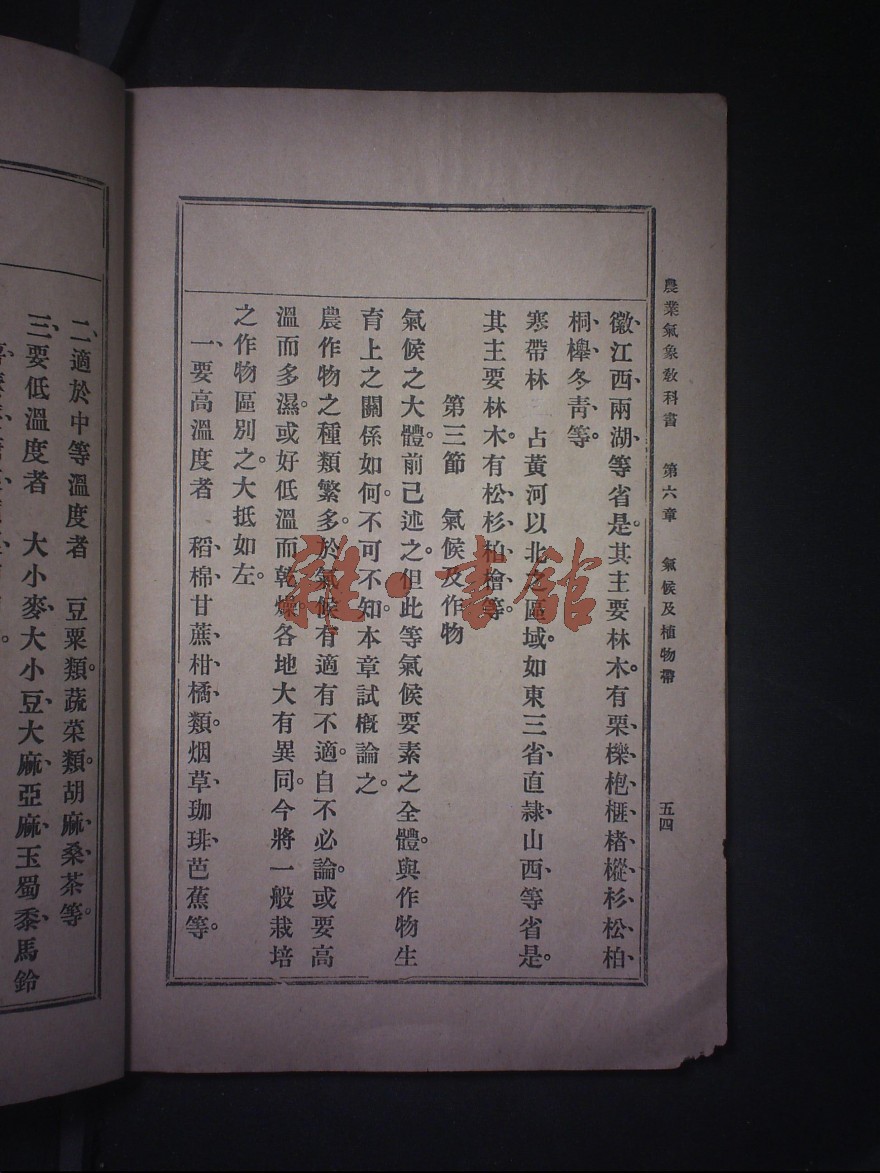 農業氣象教科書 第六章 氣候及植物帶 五四
徽、江西、兩湖、等省是。其主要林木。有栗、櫟、枹、榧、楮、樅、杉、松、柏、
桐、櫸、冬青、等。
寒帶林 占黃河以北之區域。如東三省、直隸、山西、等省是。
其主要林木。有松、杉、柏、檜、等。
第三節 氣候及作物
氣候之大體。前已述之。但此等氣候要素之全體。與作物生
育上之關係如何。不可不知。本章試概論之。
農作物之種類繁多。於氣候有適有不適。自不必論。或要高
溫而多濕。或好低溫而乾燥。各地大有異同。今將一般栽培
之作物區別之。大抵如左。
一、要高溫度者 稻、棉、甘蔗、柑橘類。烟草、珈琲、芭蕉等。
二、適於中等溫度者 豆粟類。蔬菜類。胡麻、桑、茶等。
三、要低溫度者 大小麥、大小豆、大麻、亞麻、玉蜀黍、馬鈴
雜·書館